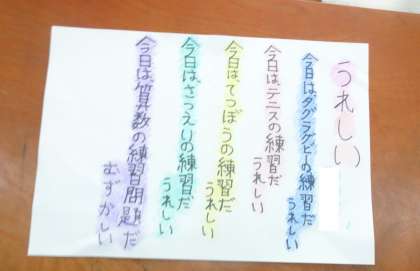 うれしい
今日は、タグラグビーの練習だ
うれしい
今日は、テニスの練習だ
うれしい
今日は、てつぼうの練習だ
うれしい
今日は、さつえいの練習だ
うれしい
今日は、算数の練習問題だ
むずかしい